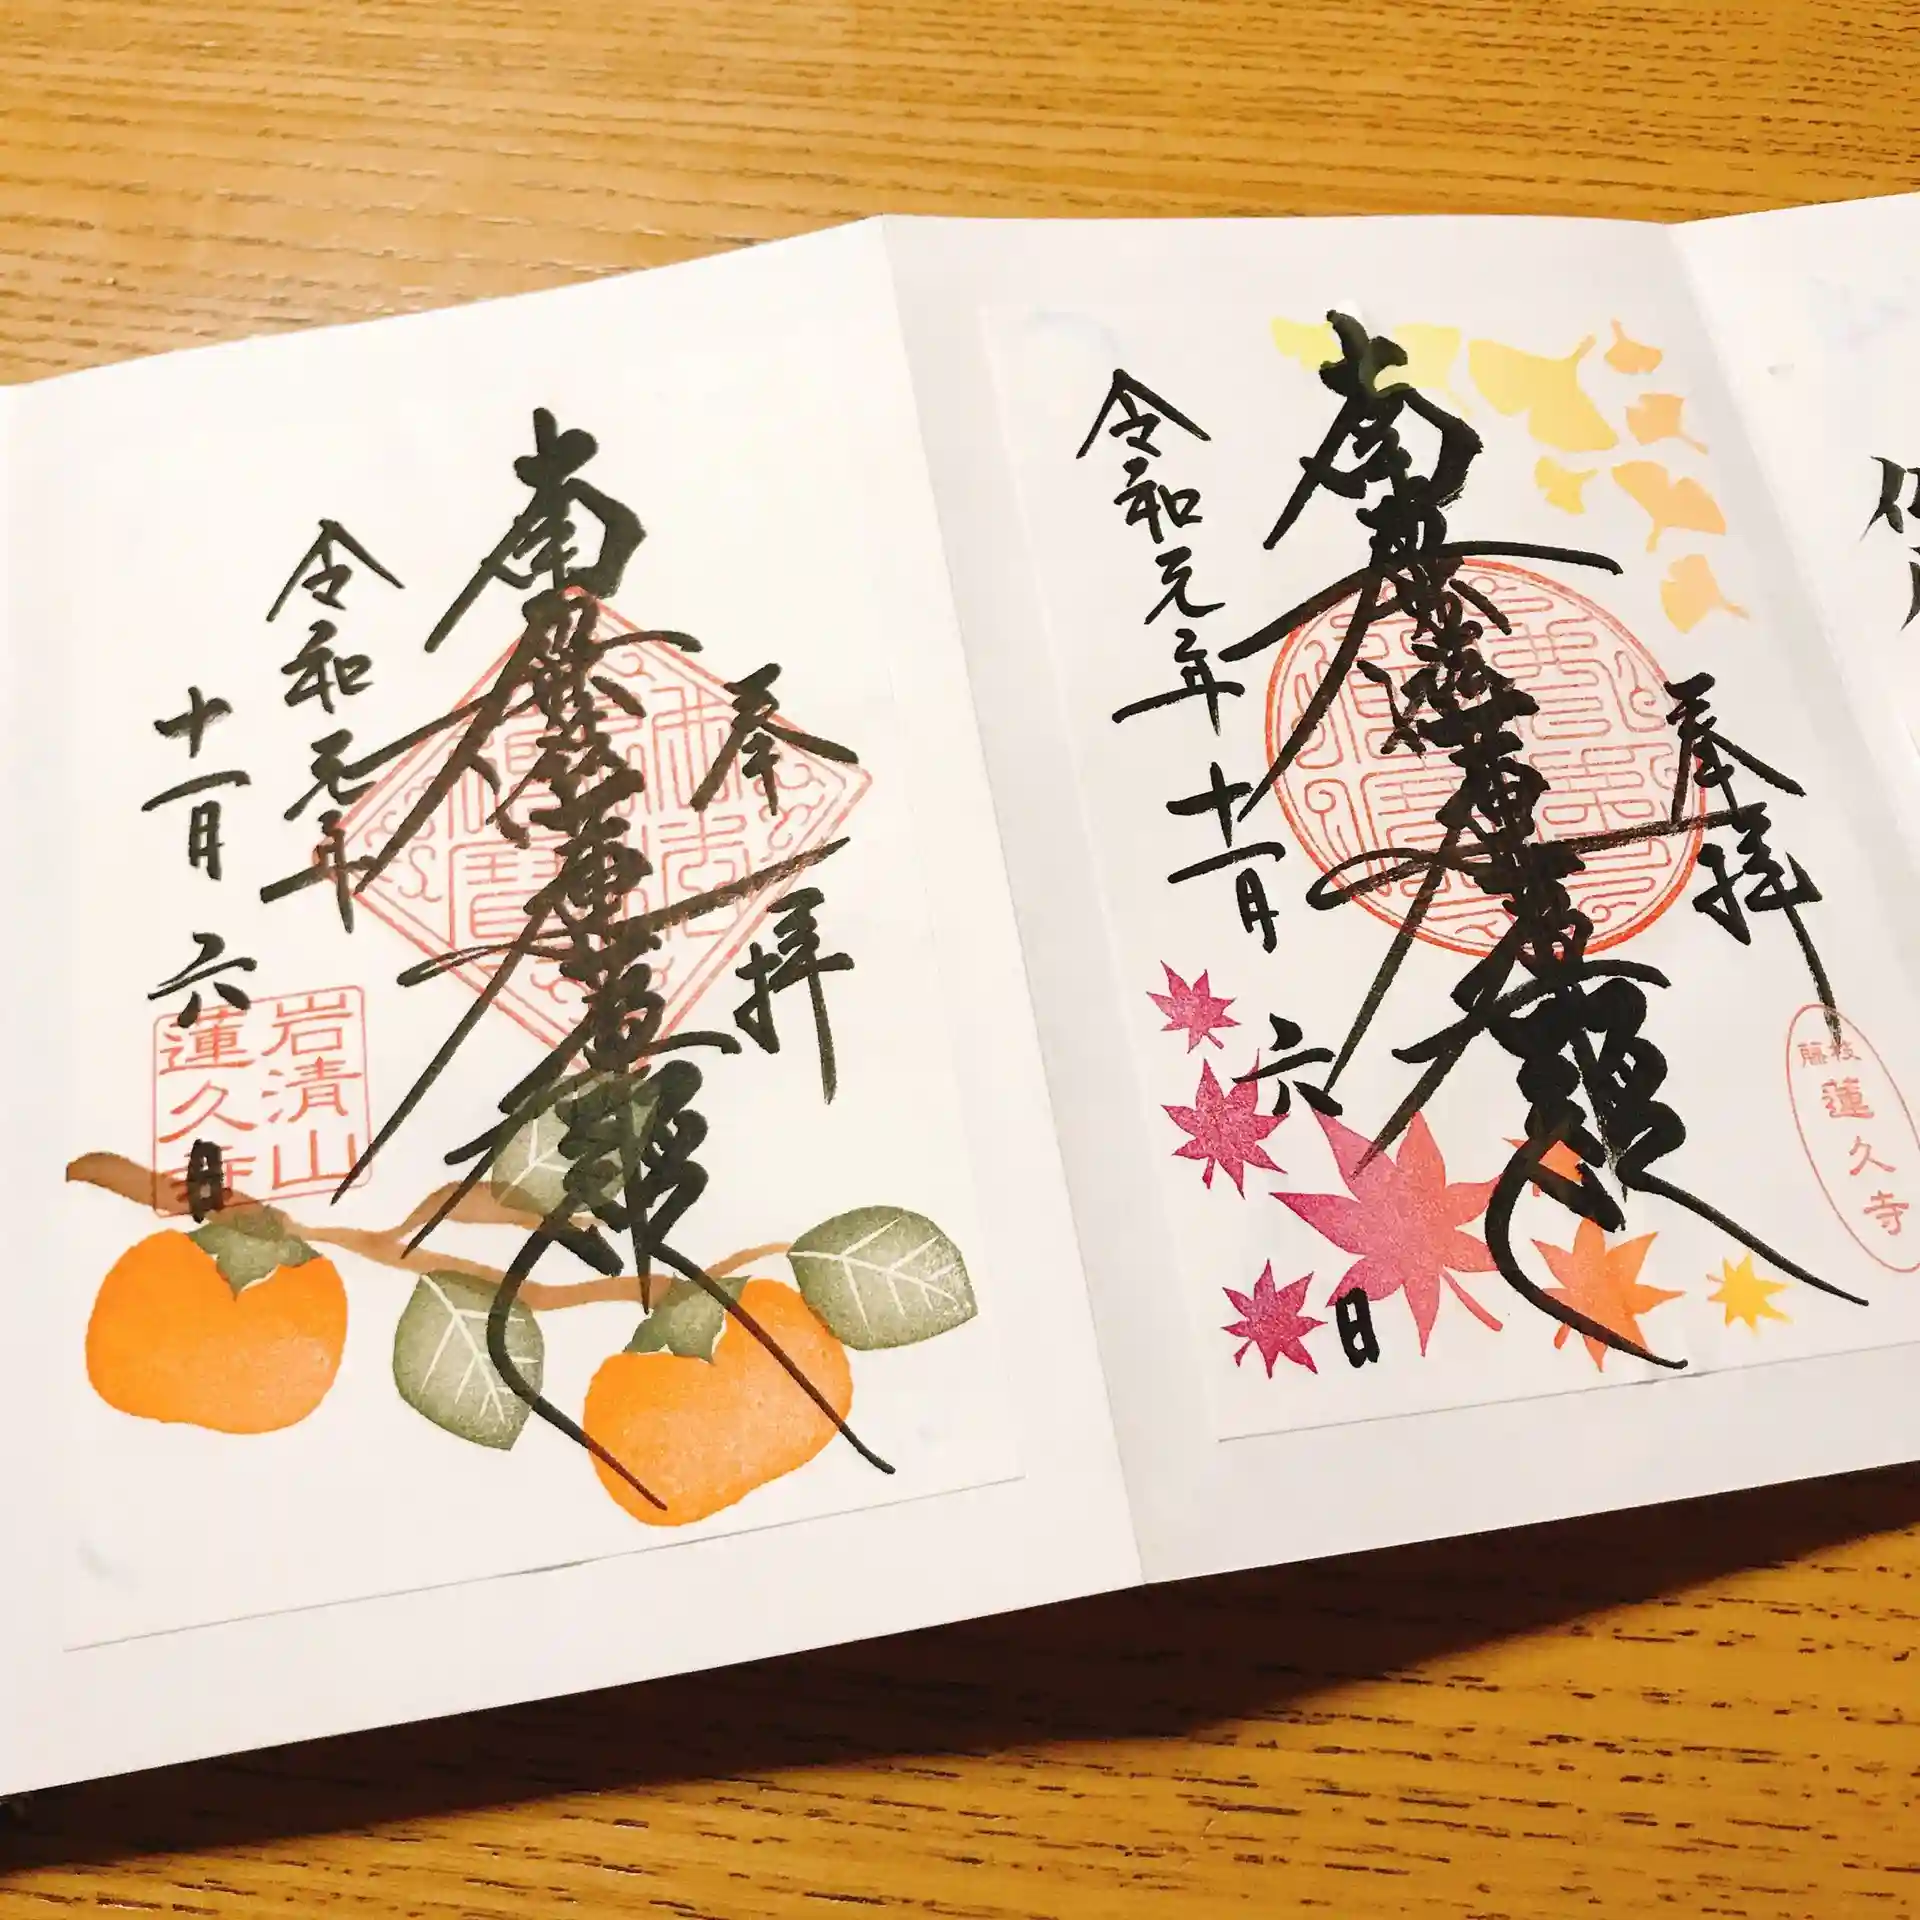 奉拝
南無妙法蓮華経
令和元年
十一月六日
岩清山
蓮久寺
奉拝
南無妙法蓮華経
令和元年
十一月六日
藤枝
蓮久寺